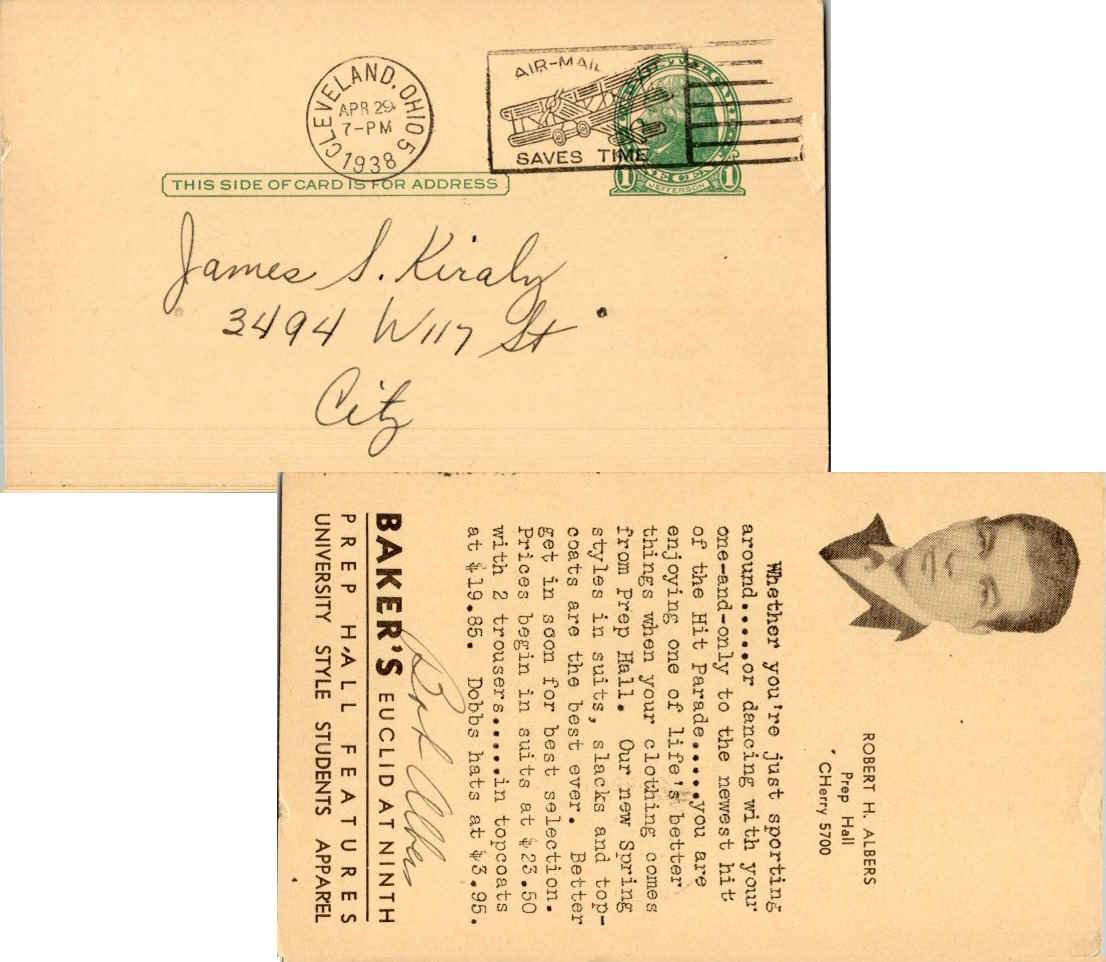 CLEVELAND, OHIO 5
APR 29
7-PM
1938
AIR-MAIL
SAVES TIME
THIS SIDE OF CARD IS FOR ADDRESS
1 JEFFERSON 1
James S. Kiraly
3494 W 117 St
City
ROBERT H. ALBERS
Prep Hall
CHerry 5700
Whether you're just sporting
around.....or dancing with your
one-and-only to the newest hit
of the Hit Parade.....you are
enjoying one of life's better
things when your clothing comes
from Prep Hall. Our new Spring
styles in suits, slacks and top-
coats are the best ever. Better
get in soon for best selection.
Prices begin in suits at $23.50
with 2 trousers.....in topcoats
at $19.85. Dobbs hats at $3.95.
Bob Albers
BAKER'S EUCLID AT NINTH
PREP HALL FEATURES
UNIVERSITY STYLE STUDENTS APPAREL